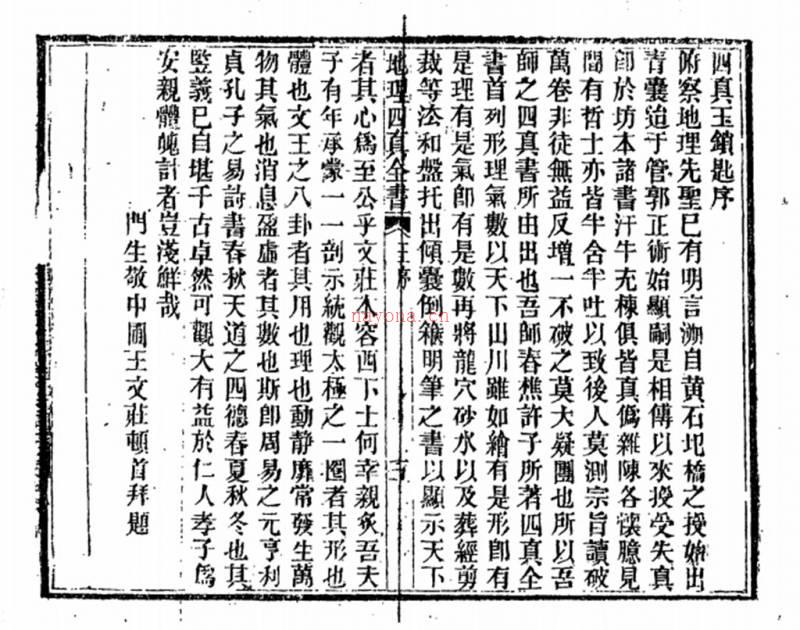 四真玉鎖匙序
俯察地理先聖已有明言溯自黃石圯橋之授始出
青囊迨于管郭正術始顯嗣是相傳以來授受失真
卽於坊本諸書汗牛充棟俱皆真僞雜陳各懷臆見
間有哲士亦皆半含半吐以致後人莫測宗旨讀破
萬卷非徒無益反增一不破之莫大疑團也所以吾
師之四真書所由出也吾師春樵許子所著四真全
書首列形理氣數以天下山川雖如繪有是形卽有
是理有是氣卽有是數再將龍穴砂水以及葬經剪
裁等法和盤托出傾囊倒篋明筆之書以顯示天下
地理四真全書
玉序
者其心爲至公乎文莊本容西下士何幸親炙吾夫
子有年承蒙一一剖示統觀太極之一圈者其形也
體也文王之八卦者其用也理也動靜靡常發生萬
物其氣也消息盈虛者其數也斯卽周易之元亨利
貞孔子之易詩書春秋天道之四德春夏秋冬也其
豎義已自堪千古卓然可觀大有益於仁人孝子爲
安親體魄計者豈淺鮮哉
門生敬中圃王文莊頓首拜題
nayona.cn